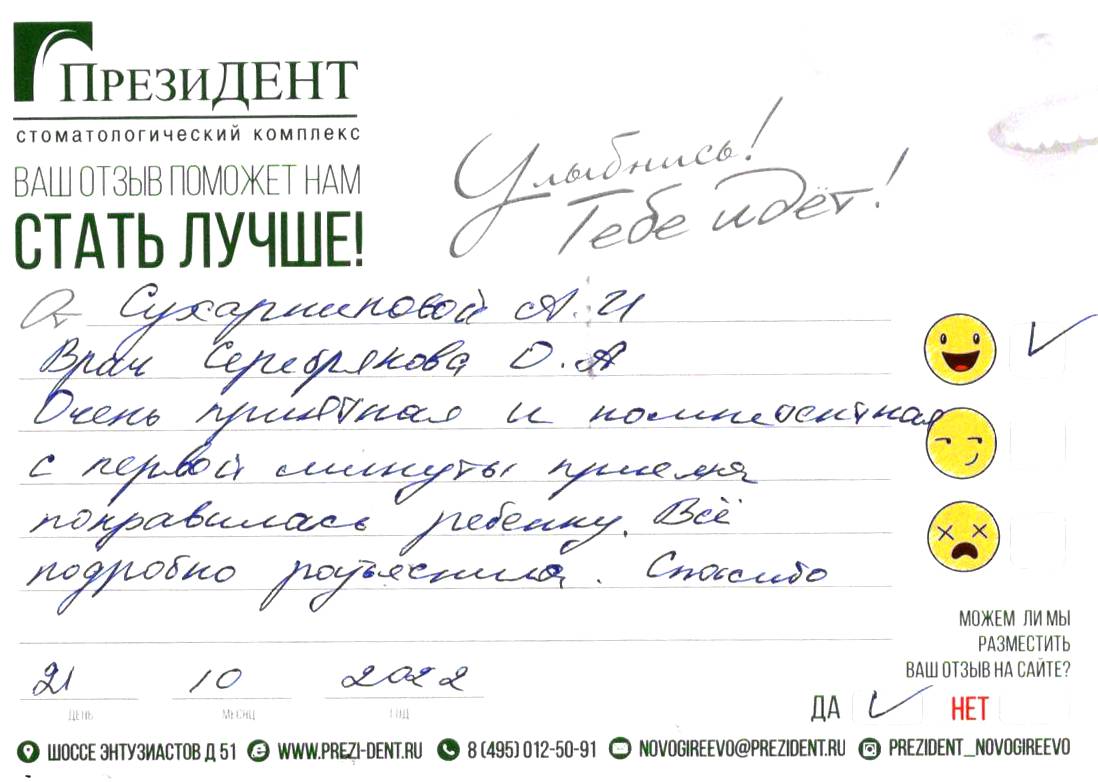 ПРЕЗИДЕНТ
СТОМАТОЛОГИЧЕСКИЙ КОМПЛЕКС
ВАШ ОТЗЫВ ПОМОЖЕТ НАМ
СТАТЬ ЛУЧШЕ!
Улыбнись!
Тебе идёт!
От Сухарниковой А.И
Врач Серебрякова О.А
Очень приятная и компетентная
с первой минуты приема
понравилась ребенку. Всё
подробно разъяснила. Спасибо
21 10 2022
ДЕНЬ МЕСЯЦ ГОД
МОЖЕМ ЛИ МЫ
РАЗМЕСТИТЬ
ВАШ ОТЗЫВ НА САЙТЕ?
ДА НЕТ
ШОССЕ ЭНТУЗИАСТОВ Д 51 WWW.PREZI-DENT.RU 8 (495) 012-50-91 NOVOGIREEVO@PREZIDENT.RU PREZIDENT_NOVOGIREEVO